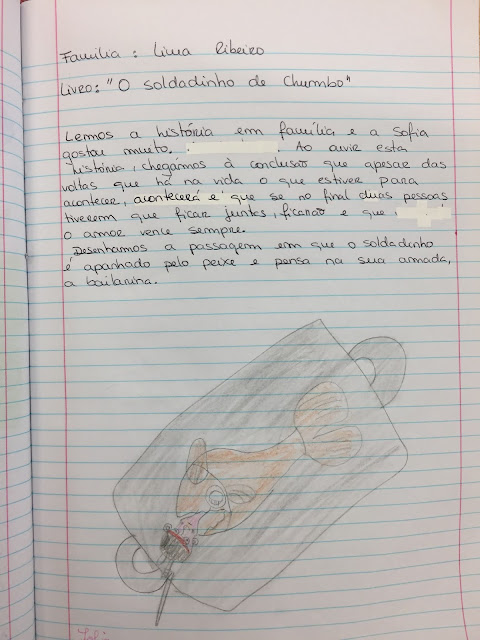 Família: Lima Ribeiro
Livro: "O soldadinho de Chumbo"
Lemos a história em família e a Sofia
gostou muito. Ao ouvir esta
história, chegámos à conclusão que apesar das
voltas que há na vida o que estiver para
acontecer, acontecerá e que se no final duas pessoas
tiverem que ficar juntas, ficarão e que
o amor vence sempre.
Desenhamos a passagem em que o soldadinho
é apanhado pelo peixe e pensa na sua amada,
a bailarina.